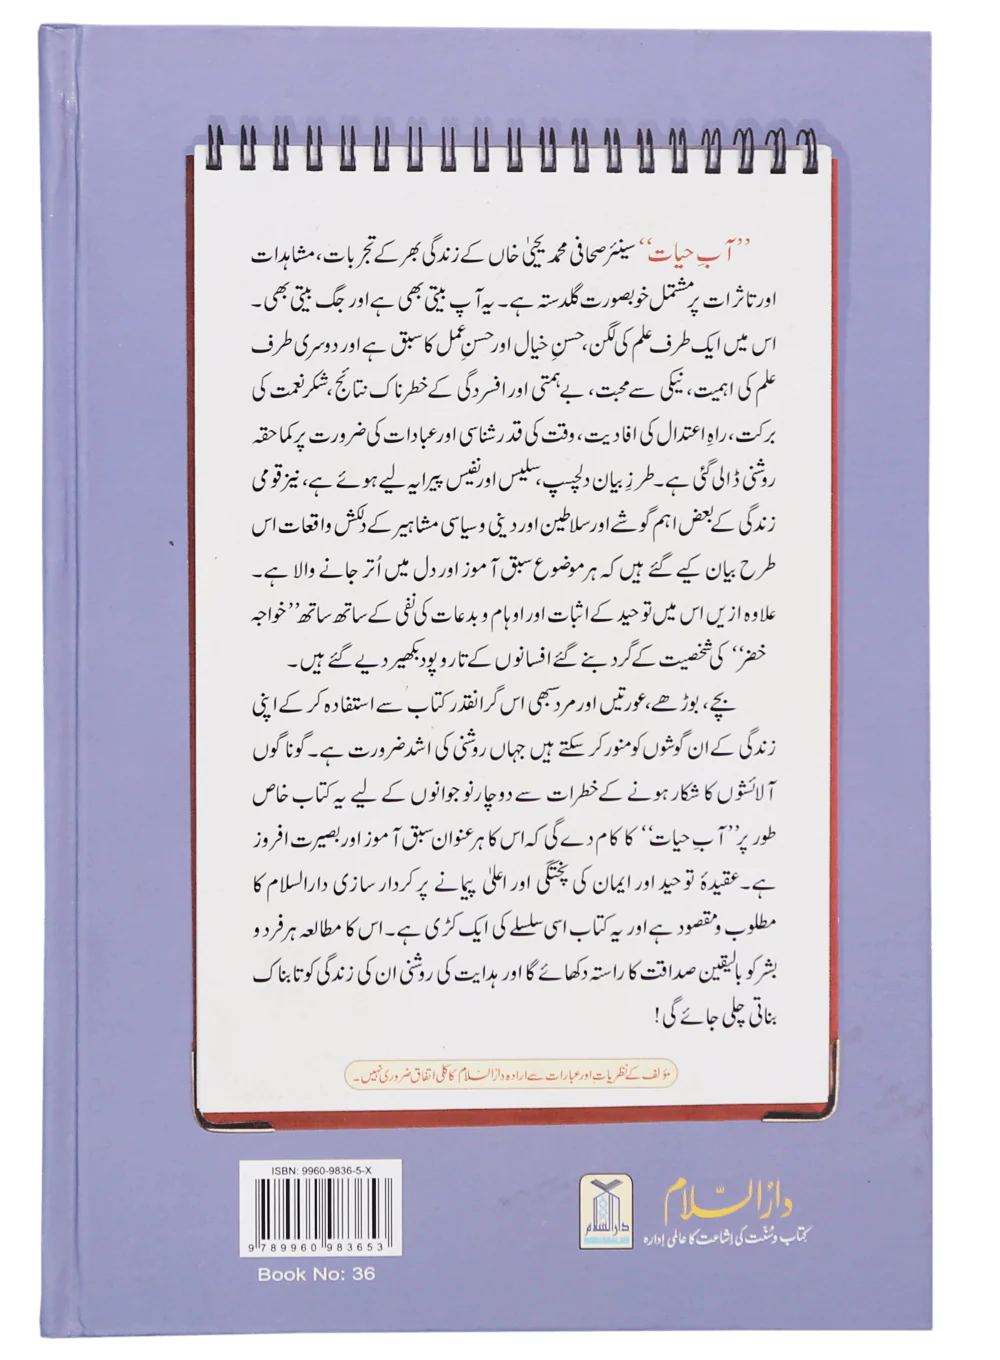 ”آبِ حیات“ سینئر صحافی محمد یحییٰ خاں کے زندگی بھر کے تجربات، مشاہدات
اور تاثرات پر مشتمل خوبصورت گلدستہ ہے۔ یہ آپ بیتی بھی ہے اور جگ بیتی بھی۔
اس میں ایک طرف علم کی لگن، حسنِ خیال اور حسنِ عمل کا سبق ہے اور دوسری طرف
علم کی اہمیت، نیکی سے محبت، بے ہمتی اور افسردگی کے خطرناک نتائج، شکرِ نعمت کی
برکت، راہِ اعتدال کی افادیت، وقت کی قدر شناسی اور عبادات کی ضرورت پر کماحقہ
روشنی ڈالی گئی ہے۔ طرزِ بیان دلچسپ، سلیس اور نفیس پیرایہ لیے ہوئے ہے، نیز قومی
زندگی کے بعض اہم گوشے اور سلاطین اور دینی و سیاسی مشاہیر کے دلکش واقعات اس
طرح بیان کیے گئے ہیں کہ ہر موضوع سبق آموز اور دل میں اُتر جانے والا ہے۔
علاوہ ازیں اس میں توحید کے اثبات اور اوہام و بدعات کی نفی کے ساتھ ساتھ ”خواجہ
خضر“ کی شخصیت کے گرد بنے گئے افسانوں کے تار و پود بکھیر دیے گئے ہیں۔
بچے، بوڑھے، عورتیں اور مرد سبھی اس گرانقدر کتاب سے استفادہ کر کے اپنی
زندگی کے ان گوشوں کو منور کر سکتے ہیں جہاں روشنی کی اشد ضرورت ہے۔ گوناگوں
آلائشوں کا شکار ہونے کے خطرات سے دوچار نوجوانوں کے لیے یہ کتاب خاص
طور پر ”آبِ حیات“ کا کام دے گی کہ اس کا ہر عنوان سبق آموز اور بصیرت افروز
ہے۔ عقیدۂ توحید اور ایمان کی پختگی اور اعلیٰ پیمانے پر کردار سازی دارالسلام کا
مطلوب و مقصود ہے اور یہ کتاب اسی سلسلے کی ایک کڑی ہے۔ اس کا مطالعہ ہر فرد و
بشر کو بالیقین صداقت کا راستہ دکھائے گا اور ہدایت کی روشنی ان کی زندگی کو تابناک
بناتی چلی جائے گی!
مؤلف کے نظریات اور عبارات سے ادارہ دارالسلام کا کلی اتفاق ضروری نہیں۔
ISBN: 9960-9836-5-X
9 789960 983653
Book No: 36
دارالسلام
دارُالسّلام
کتاب و سُنّت کی اشاعت کا عالمی ادارہ